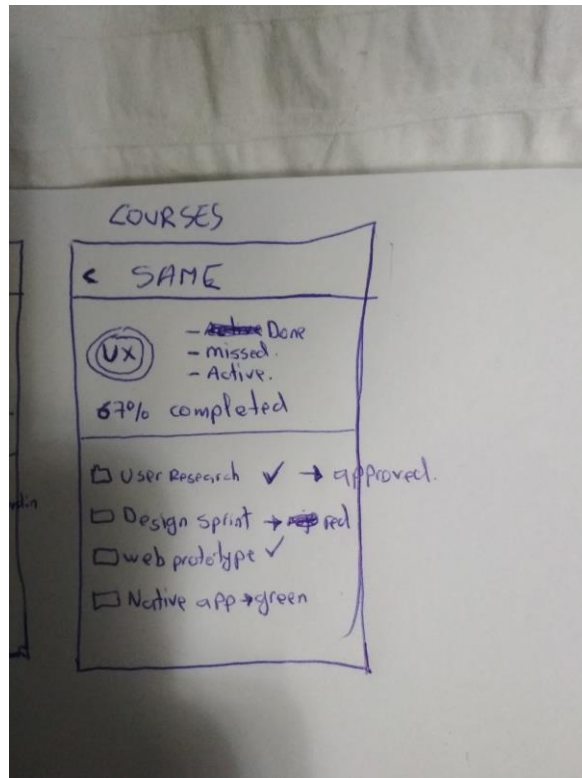 COURSES
< SAME
UX
- Done
- missed.
- Active.
67% completed
User Research ✓ → approved.
Design sprint → red
web prototype ✓
Native app → green